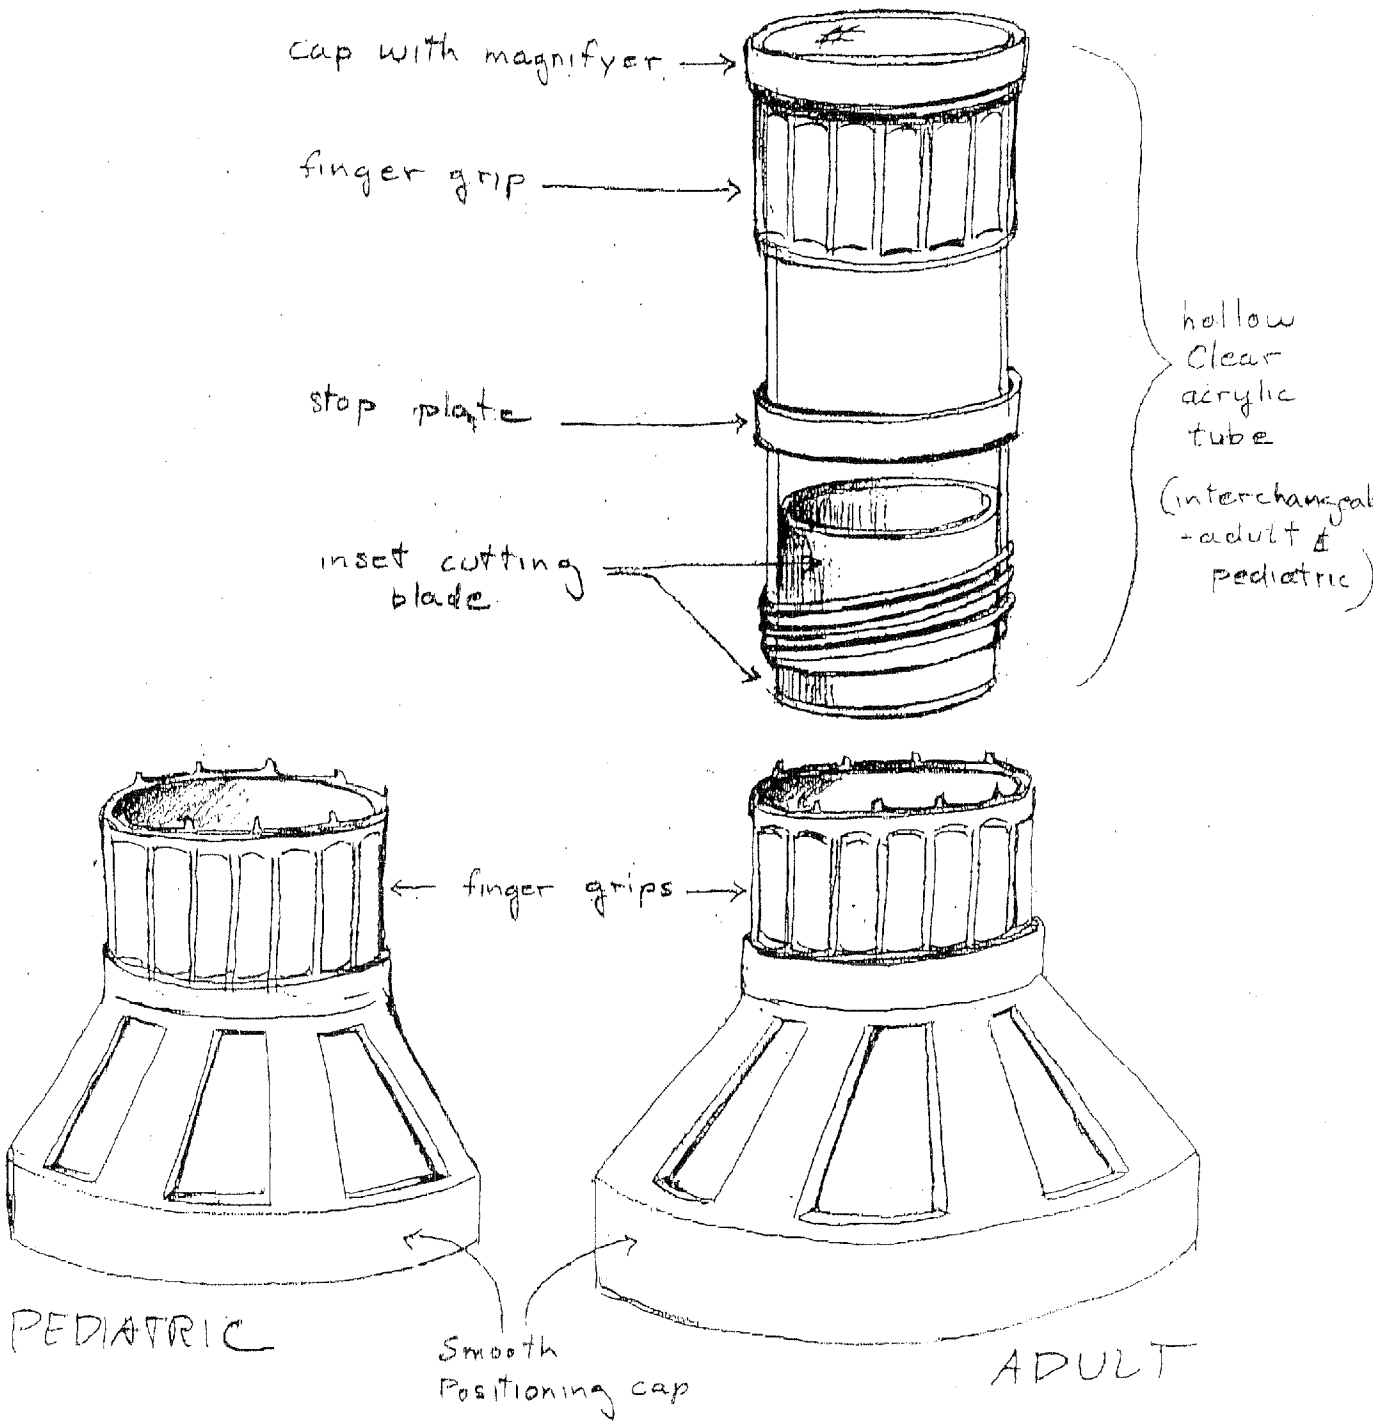 cap with magnifyer
finger grip
stop plate
inset cutting
blade
hollow
Clear
acrylic
tube
(interchangeab
-adult &
pediatric)
finger grips
PEDIATRIC
Smooth
Positioning cap
ADULT